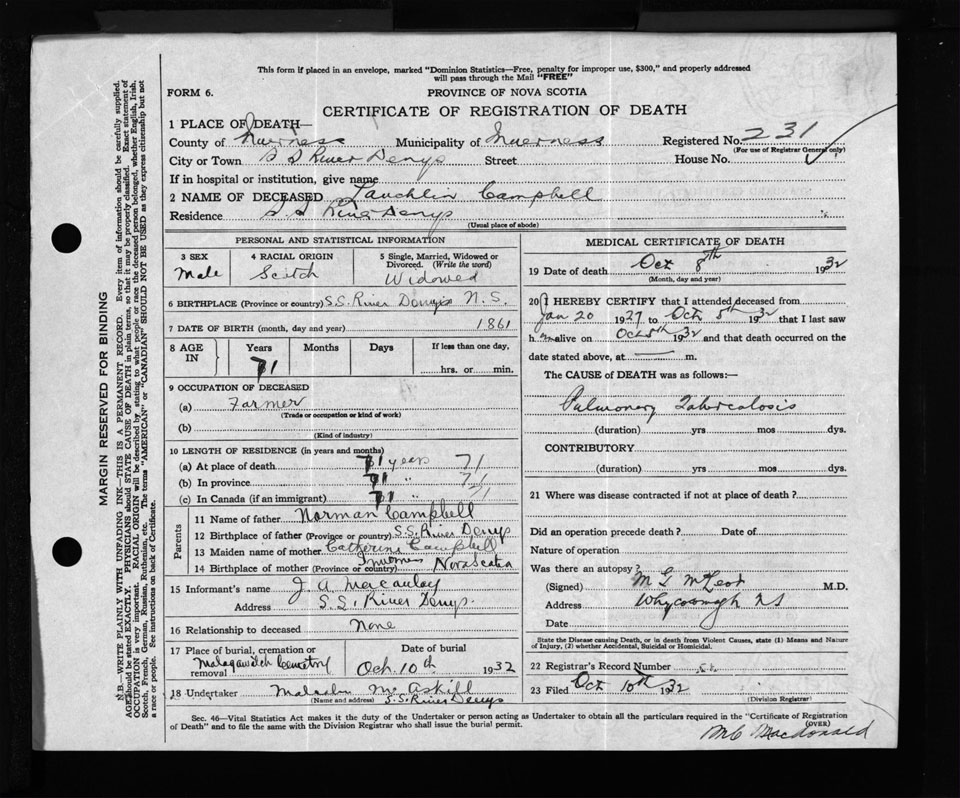 This form if placed in an envelope, marked "Dominion Statistics—Free, penalty for improper use, $300," and properly addressed
will pass through the Mail "FREE"
FORM 6.
PROVINCE OF NOVA SCOTIA
CERTIFICATE OF REGISTRATION OF DEATH
1 PLACE OF DEATH—
County of Inverness Municipality of Inverness Registered No. 231
(For use of Registrar General only)
City or Town S S River Denys Street House No.
If in hospital or institution, give name
2 NAME OF DECEASED Lauchlin Campbell
Residence S S River Denys
(Usual place of abode)
PERSONAL AND STATISTICAL INFORMATION
3 SEX 4 RACIAL ORIGIN 5 Single, Married, Widowed or
Divorced. (Write the word)
Male Scotch Widowed
6 BIRTHPLACE (Province or country) S.S. River Denys N.S.
7 DATE OF BIRTH (month, day and year) 1861
8 AGE IN Years Months Days If less than one day,
71 hrs. or min.
9 OCCUPATION OF DECEASED
(a) Farmer
(Trade or occupation or kind of work)
(b)
(Kind of industry)
10 LENGTH OF RESIDENCE (in years and months)
(a) At place of death 71 years 71
(b) In province 71 " 71
(c) In Canada (if an immigrant) 71 " 71
Parents
11 Name of father Norman Campbell
12 Birthplace of father (Province or country) S.S. River Denys
13 Maiden name of mother Catherine Campbell
14 Birthplace of mother (Province or country) Nova Scotia
15 Informant's name J. A. Macaulay
Address S.S. River Denys.
16 Relationship to deceased None
17 Place of burial, cremation or removal Date of burial
Malagawatch Cemetery Oct. 10th 1932
18 Undertaker Malcolm McAskill
(Name and address) S.S. River Denys
MEDICAL CERTIFICATE OF DEATH
19 Date of death Oct 8th 1932
(Month, day and year)
20 I HEREBY CERTIFY that I attended deceased from
Jan 20 1927 to Oct 5th 1932 that I last saw
him alive on Oct 5th 1932 and that death occurred on the
date stated above, at m.
The CAUSE of DEATH was as follows:—
Pulmonary Tuberculosis
(duration) yrs mos dys.
CONTRIBUTORY
(duration) yrs mos dys.
21 Where was disease contracted if not at place of death?
Did an operation precede death? Date of
Nature of operation
Was there an autopsy?
(Signed) M L McLeod M.D.
Address Whycocomagh NS
Date
State the Disease causing Death, or in death from Violent Causes, state (1) Means and Nature
of Injury, (2) whether Accidental, Suicidal or Homicidal.
22 Registrar's Record Number
23 Filed Oct 10th 1932
(Division Registrar)
Sec. 46—Vital Statistics Act makes it the duty of the Undertaker or person acting as Undertaker to obtain all the particulars required in the "Certificate of Registration
of Death" and to file the same with the Division Registrar who shall issue the burial permit.
(OVER)
MacDonald
MARGIN RESERVED FOR BINDING
N.B.—WRITE PLAINLY WITH UNFADING INK—THIS IS A PERMANENT RECORD. Every item of information should be carefully supplied.
AGE should be stated EXACTLY. PHYSICIANS should STATE CAUSE OF DEATH in plain terms, so that it may be properly classified. Exact statement of
OCCUPATION is very important. RACIAL ORIGIN will be described by stating to what people or race the deceased person belonged, whether English, Irish,
Scotch, French, German, Russian, Ruthenian, etc. The terms "AMERICAN" or "CANADIAN" SHOULD NOT BE USED as they express citizenship but not
a race or people. See instructions on back of Certificate.